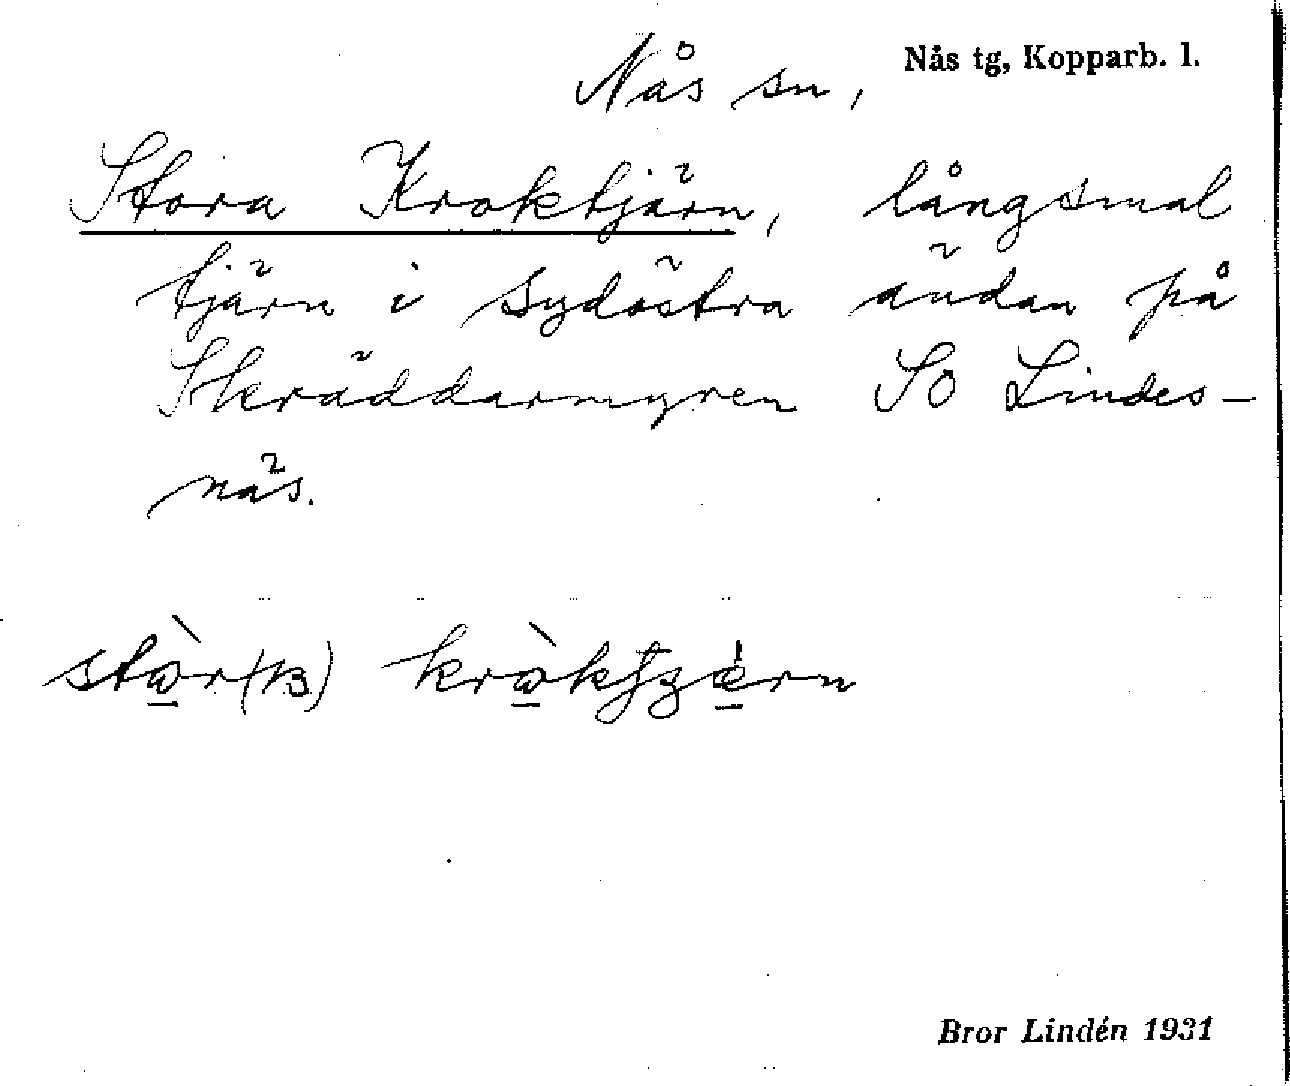 Nås tg, Kopparb. l.
Nås sn,
Stora Kroktjärn, långsmal
tjärn i sydöstra ändan på
Skräddarmyren SO Lindes-
näs.
Bror Lindén 1931